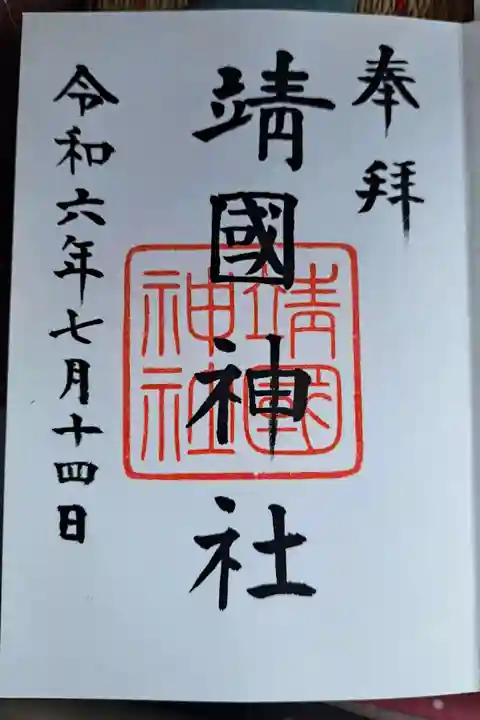 奉拜
靖國神社
靖國
神社
令和六年七月十四日